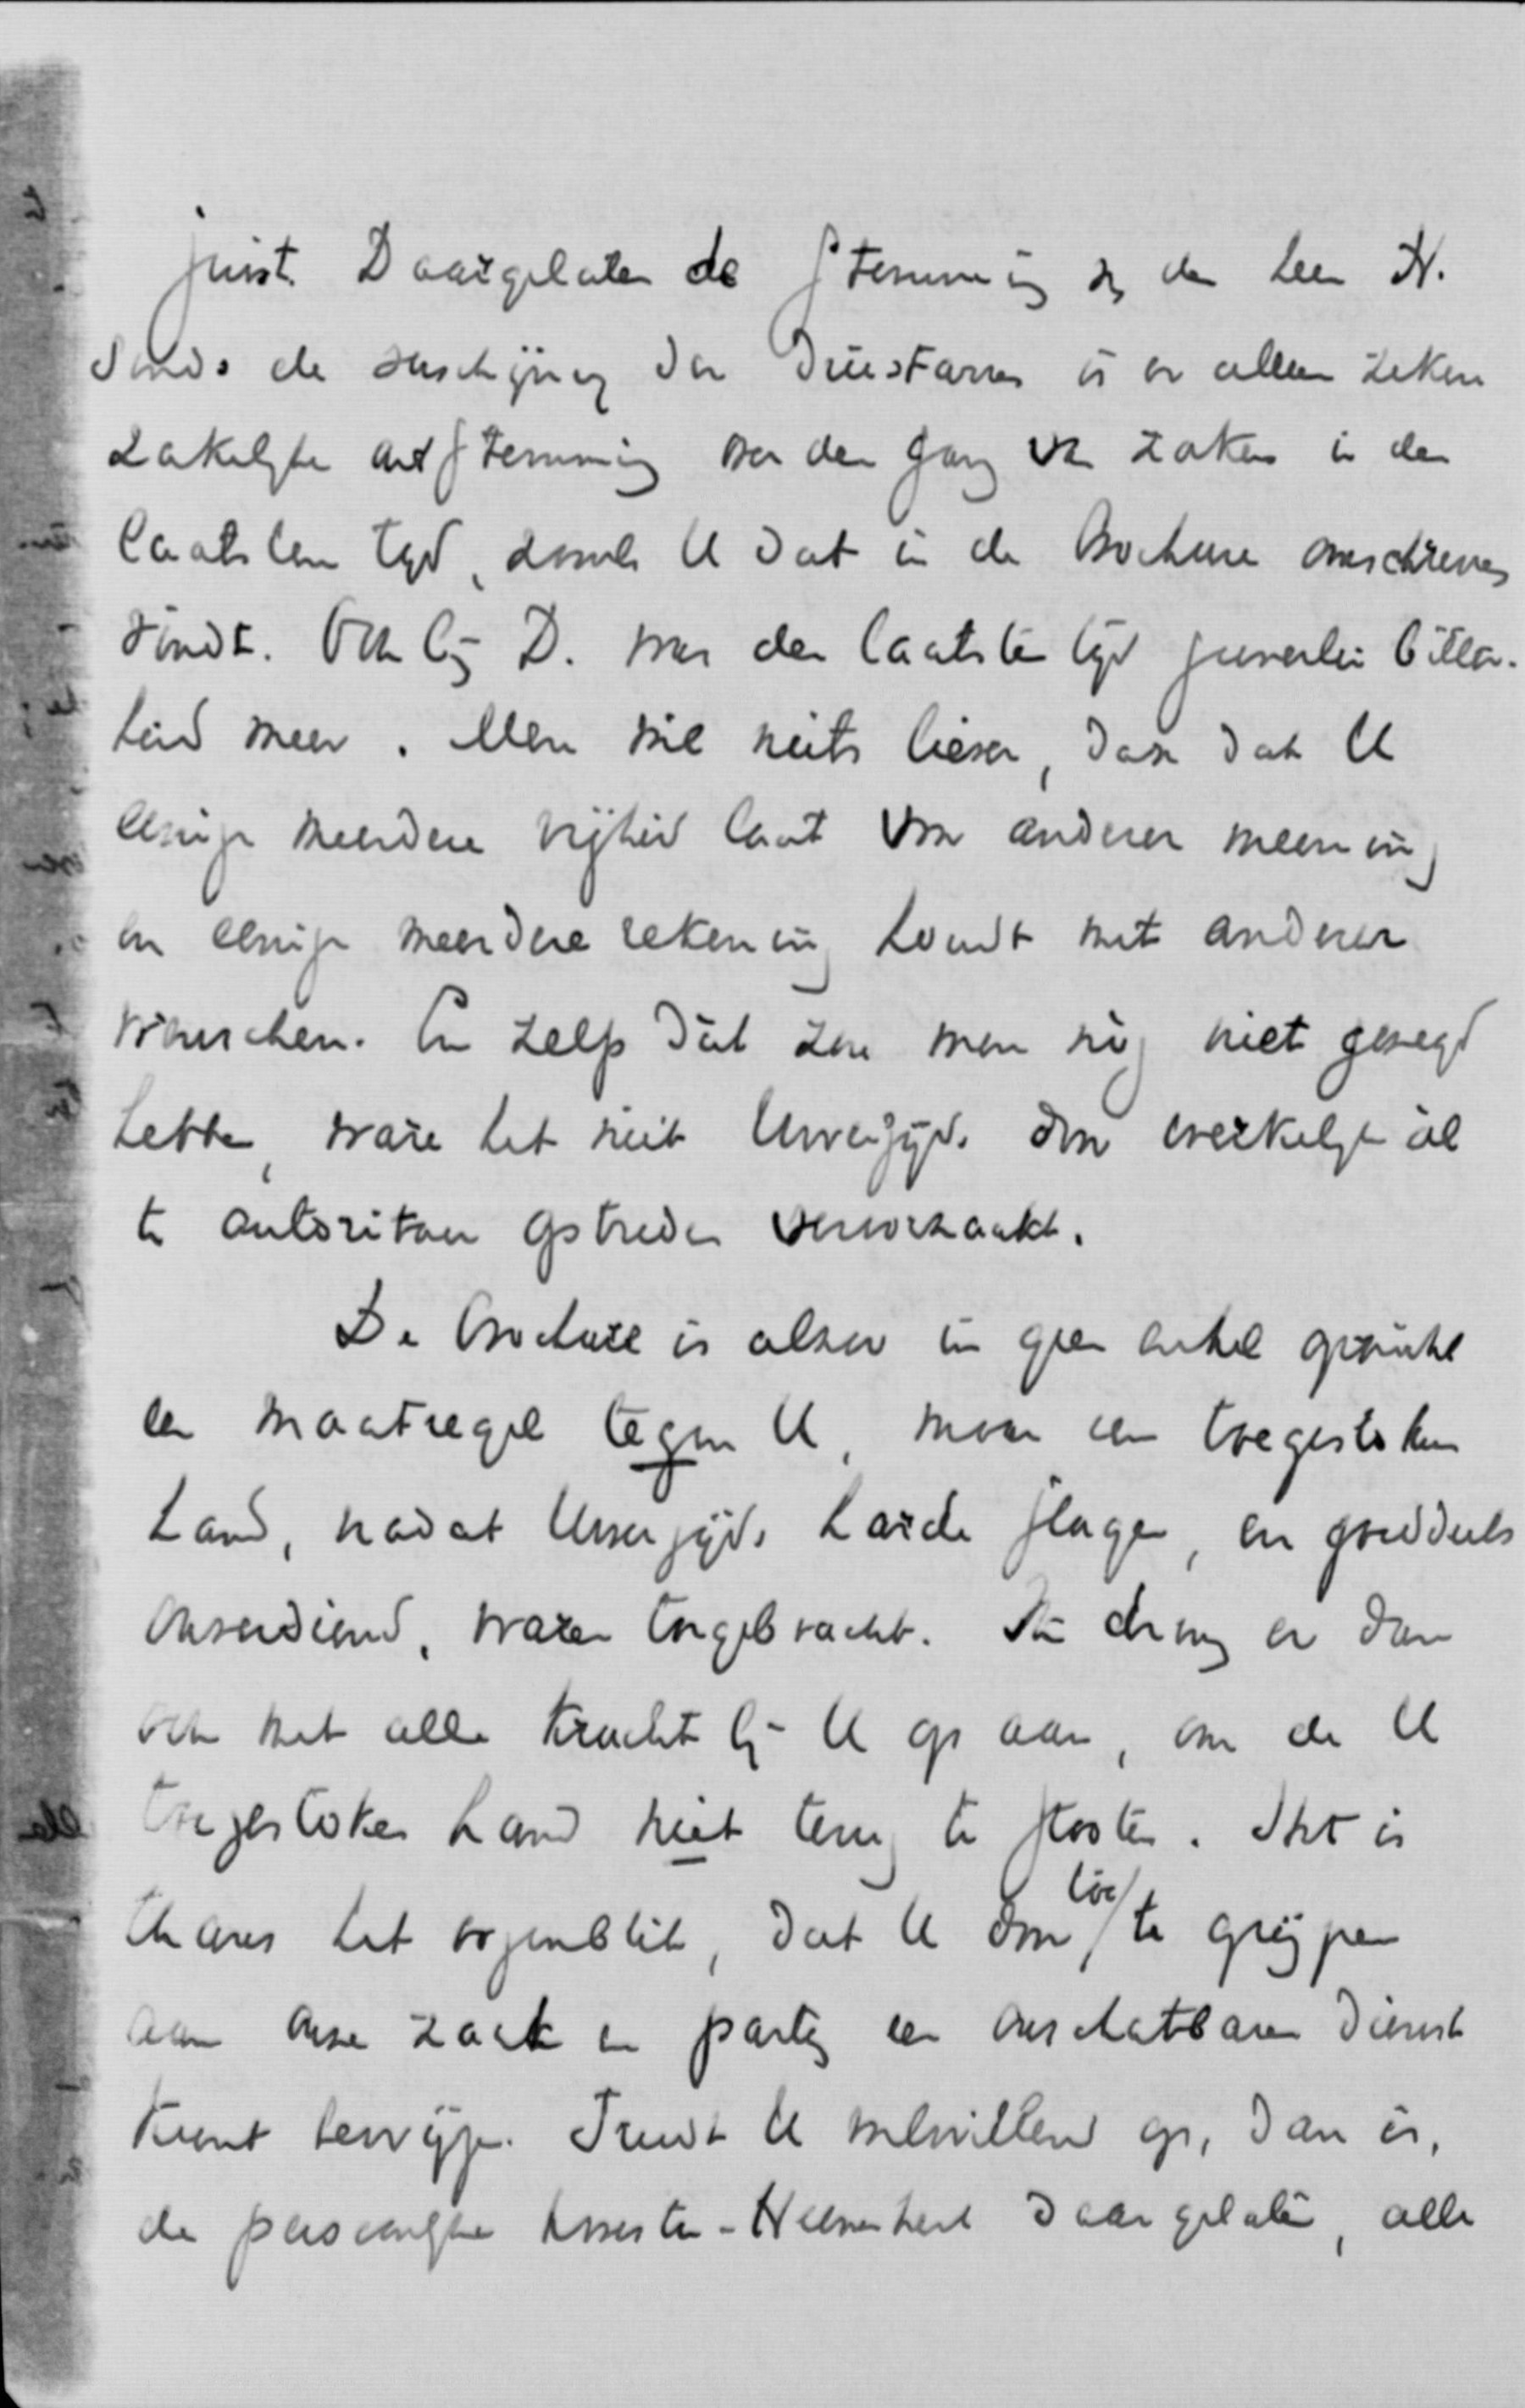 juist. Daargelaten de stemming bij den heer H.
Sinds de verschijning der Driestarren is er alleen zekere
zakelyke ontstemming over den gang van zaken in den
laatsten tyd, zooals U dat in de brochure omschreven
vindt. Ook bij D. was den laatsten tijd geenerlei bitter-
heid meer. Men wil niets liever, dan dat U
eenige meerdere vrijheid laat voor anderer meening
en eenige meerdere rekening houdt met anderer
wenschen. En zelfs dát zou men nóg niet gezegd
hebben, ware het niet Uwerzijds door werkelyk àl
te autoritair optreden veroorzaakt.
De brochure is alzoo in geen enkel opzicht
een maatregel tegen U, maar een toegestoken
hand, nadat Uwerzijds harde slagen, en goeddeels
onverdiend, waren toegebracht. Ik dring er dan
ook met alle kracht bij U op aan, om de U
toegestoken hand niet terug te stooten. Het is
thans het oogenblik, dat U door toe/te grijpen
aan onze zaak en partij een onschatbaren dienst
kunt bewijzen. Treedt U welwillend op, dan is,
de persoonlyke kwestie-Heemskerk daargelaten, alle